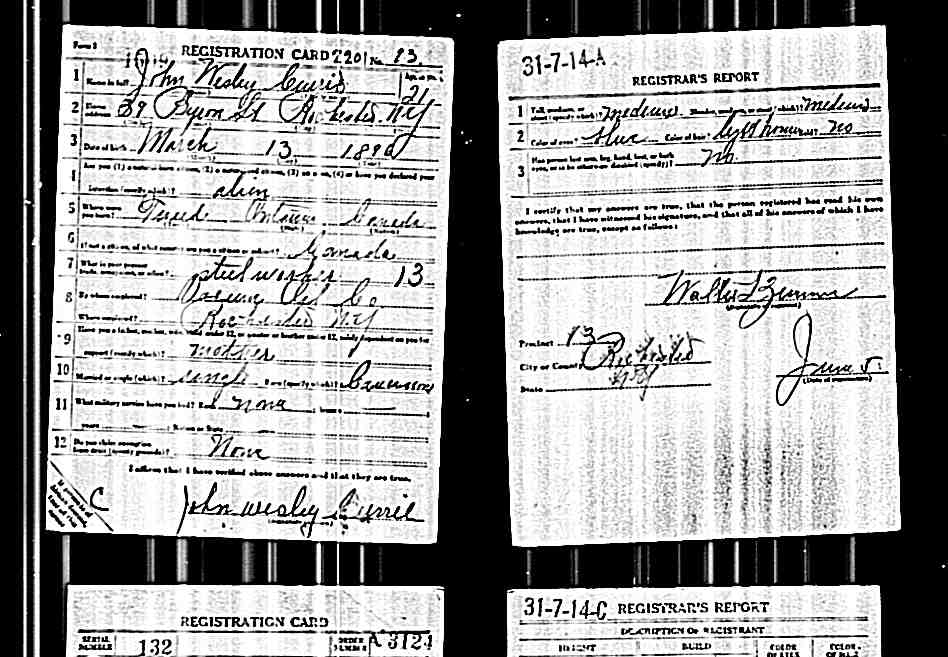 Form 1
REGISTRATION CARD 2201 No. 13
1 Name in full John Wesley Currie Age, in yrs. 21
2 Home address 39 Byron St Rochester NY
3 Date of birth March 13 1896
4 Are you (1) a natural-born citizen, (2) a naturalized citizen, (3) an alien, (4) or have you declared your
intention (specify which)? alien
5 Where were you born? Tweed Ontario Canada
6 If not a citizen, of what country are you a citizen or subject? Canada
7 What is your present trade, occupation, or office? steel worker 13
8 By whom employed? Co
Where employed? Rochester NY
9 Have you a father, mother, wife, child under 12, or a sister or brother under 12, solely dependent on you for
support (specify which)? mother
10 Married or single (which)? single Race (specify which)? Caucasian
11 What military service have you had? Rank none ; branch
years ; Nation or State
12 Do you claim exemption from draft (specify grounds)? None
I affirm that I have verified above answers and that they are true.
C
John Wesley Currie
31-7-14-A
REGISTRAR'S REPORT
1 Tall, medium, or short (specify which)? medium Slender, medium, or stout (which)? medium
2 Color of eyes? blue Color of hair? light brown Bald? no
3 Has person lost arm, leg, hand, foot, or both eyes, or is he otherwise disabled (specify)? no.
I certify that my answers are true, that the person registered has read his own
answers, that I have witnessed his signature, and that all of his answers of which I have
knowledge are true, except as follows:
Walter
(Signature of registrar)
Precinct 13
City or County Rochester
State NY
June 5.
(Date of registration)
REGISTRATION CARD
SERIAL NUMBER 132 ORDER NUMBER A 3124
31-7-14-C REGISTRAR'S REPORT
DESCRIPTION OF REGISTRANT
HEIGHT BUILD COLOR OF EYES COLOR OF HAIR